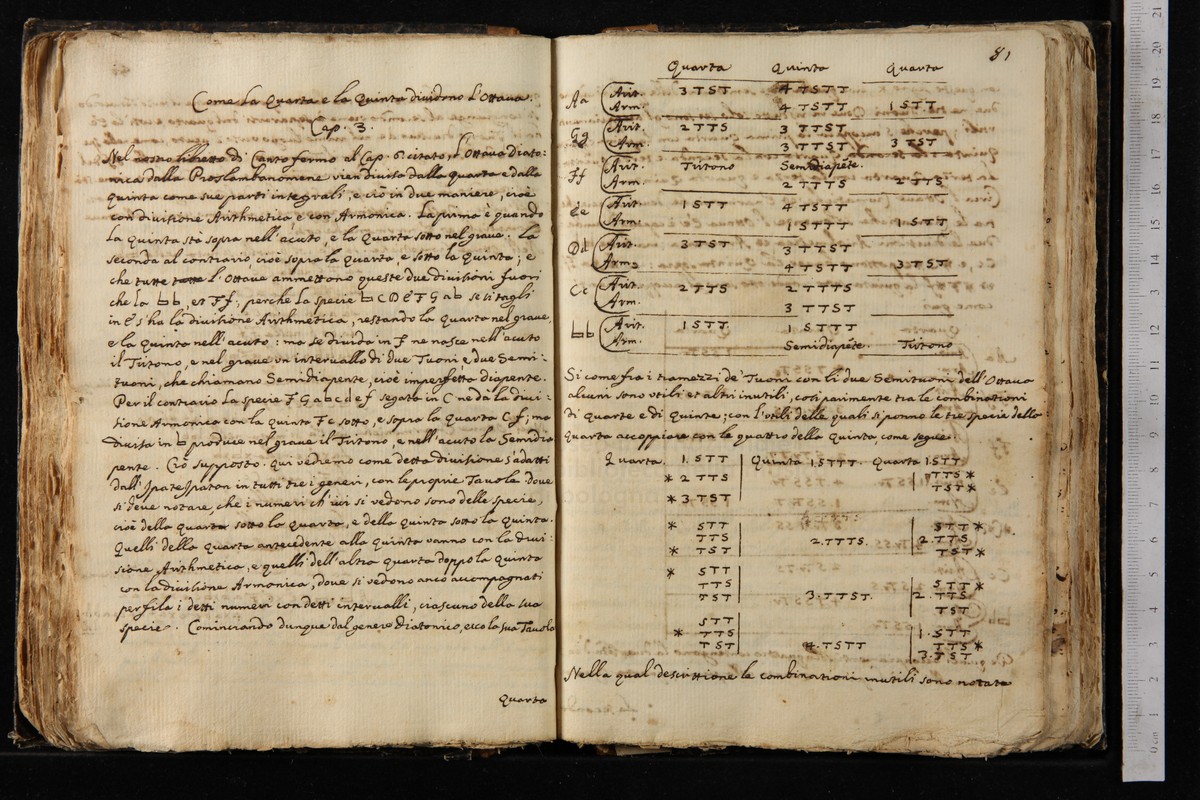 Come la Quarta e la Quinta dividono l'Ottava.
Cap. 3.
Nel nostro libretto di Canto fermo al Cap. 6. citato, l'Ottava Diato=
nica dalla Proslambanomene vien divisa dalla quarta e dalla
quinta come sue parti integrali, e ciò in due maniere, cioè
con divisione Arithmetica e con Armonica. La prima è quando
la quinta stà sopra nell'acuto, e la quarta sotto nel grave. La
seconda al contrario cioè sopra la quarta, e sotto la quinta; e
che tutte l'Ottave ammettono queste due divisioni fuori
che la ♮♮, et Ff; perche la specie ♮ C D E F G a ♮ se si tagli
in E s'ha la divisione Arithmetica, restando la quarta nel grave,
e la quinta nell'acuto: ma se divida in F ne nasce nell'acuto
il Tritono, e nel grave un intervallo di due Tuoni e due Semi:
tuoni, che chiamano Semidiapente, cioè imperfetta diapente.
Per il contrario la specie F G a b c d e f segata in C ne dà la divi:
sione Armonica con la quinta F c sotto, e sopra la quarta C f; ma
divisa in ♮ produce nel grave il Tritono, e nell'acuto la Semidia
pente. Ciò supposto. qui vedremo come detta divisione s'adatti
dall'Ipate Ipaton in tutti tre i generi, con le proprie Tavole dove
si deve notare, che i numeri ch'ivi si vedono sono delle specie,
cioè della quarta sotto la quarta, e della quinta sotto la quinta.
Quelli della quarta antecedente alla quinta vanno con la divi:
sione Arithmetica, e quelli dell'altra quarta doppo la quinta
con la divisione Armonica, dove si vedono anco accompagnati
per fila i detti numeri con detti intervalli, ciascuno della sua
specie. Cominciando dunque dal genere Diatonico, ecco la sua Tavola
Quarta
81
Quarta Quinta Quarta
Aa Arit. 3 TST 4 TSTT
Arm. 4 TSTT 1 STT
Gg Arit. 2 TTS 3 TTST
Arm. 3 TTST 3 TST
Ff Arit. Tritono Semidiapẽte.
Arm. 2 TTTS 2 TTS
Ee Arit. 1 STT 4 TSTT
Arm. 1 STTT 1 STT
Dd Arit. 3 TST 3 TTST
Arm. 4 TSTT 3 TST
Cc Arit. 2 TTS 2 TTTS
Arm. 3 TTST
♮♮ Arit. 1 STT 1 STTT
Arm. Semidiapẽte. Tritono
Si come fra i tramezzi de' Tuoni con li due Semituoni dell'Ottava
alcuni sono utili et altri inutili, così parimente tra le combinationi
di quarte e di quinte; con l'utili delle quali si ponno le tre specie della
quarta accoppiare con le quattro della quinta, come segue.
Quarta. 1. STT Quinta 1. STTT. Quarta 1. STT
* 2 TTS TTS *
* 3 TST TST *
* STT STT *
TTS 2. TTTS. 2. TTS
* TST TST *
* STT STT *
TTS 3. TTST. 2. TTS
TST TST
STT 1. STT
* TTS 4. TSTT TTS *
TST 3. TST
Nella qual descrittione le combinationi inutili sono notate